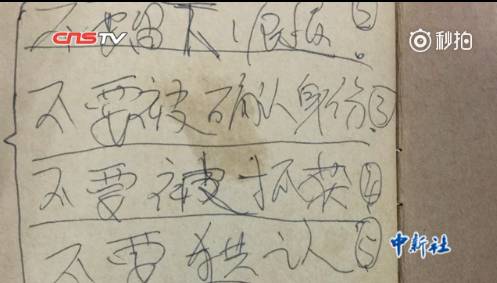 CNSTV
秒拍
不要留下 ②
不要被确认身份③
不要被抓获④
中新社
不要供认⑤